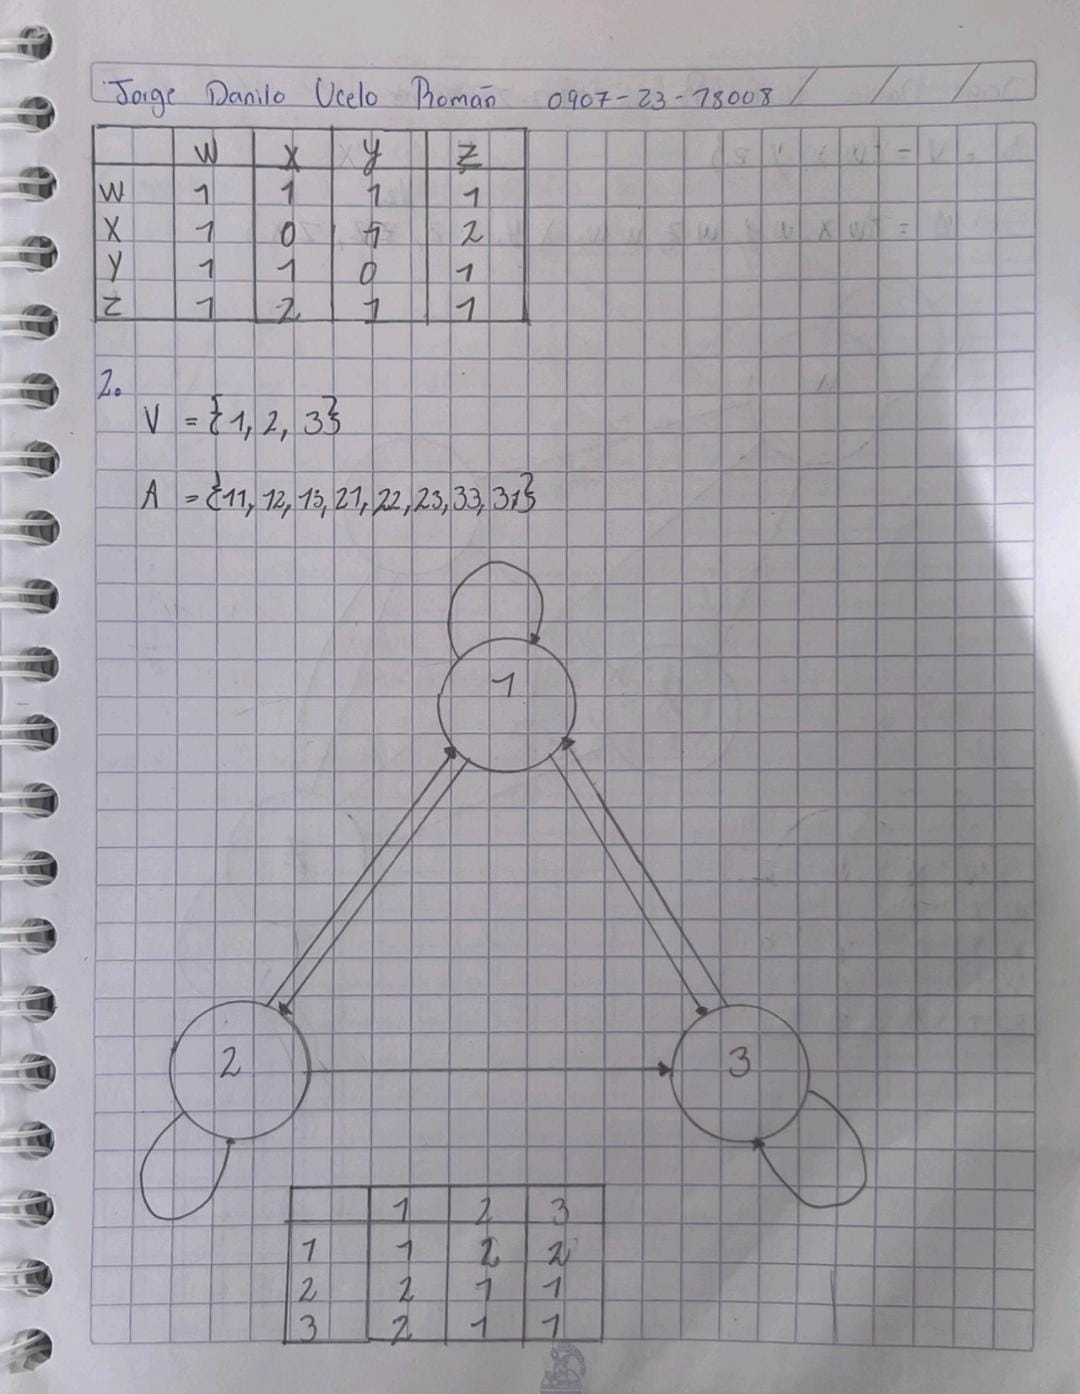 Jorge Danilo Ucelo Román 0907-23-18008 / / /
W X Y Z
W 1 1 1 1
X 1 0 1 2
Y 1 1 0 1
Z 1 2 1 1
2.
V = {1, 2, 3}
A = {11, 12, 13, 21, 22, 23, 33, 31}
1
2 3
1 2 3
1 1 2 2
2 2 1 1
3 2 1 1